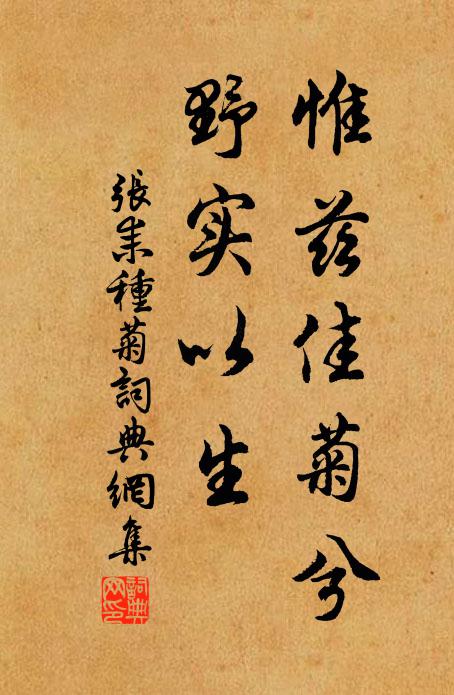 惟兹佳菊兮
野实以生
張耒種菊詞典網集
詞典網印